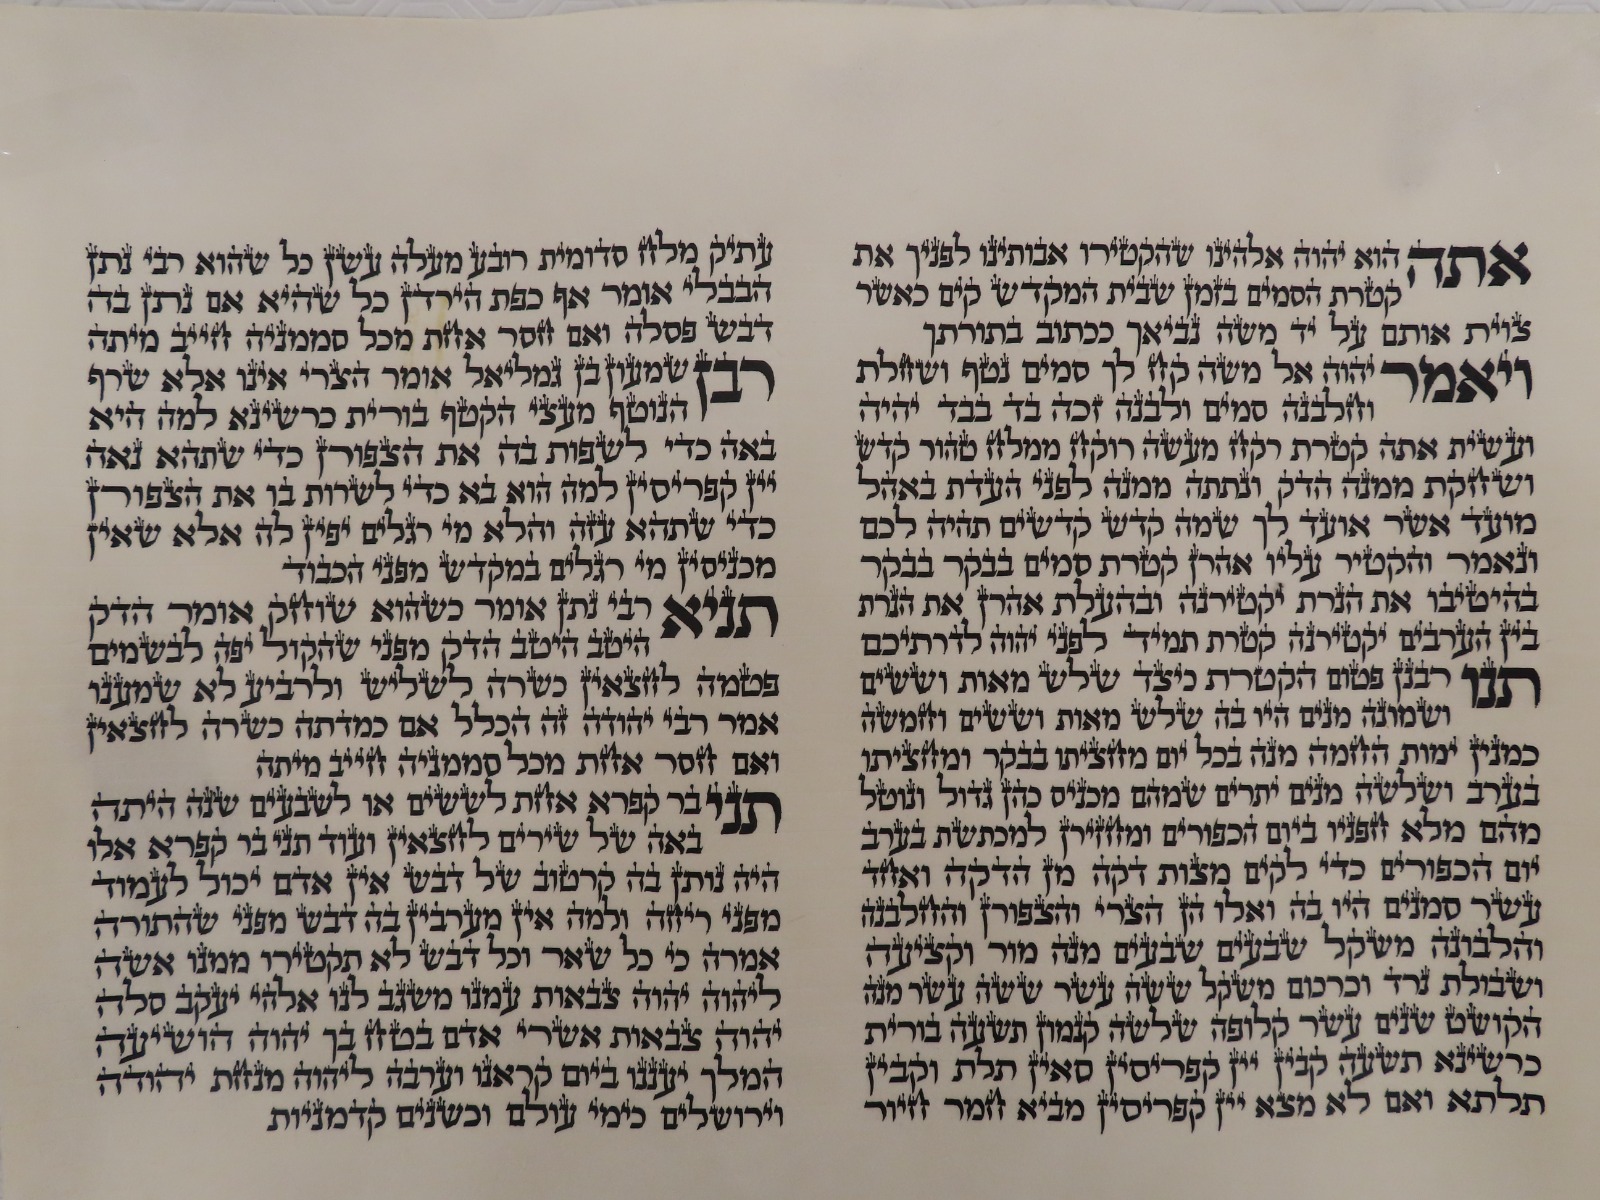 אתה הוא יהוה אלהינו שהקטירו אבותינו לפניך את
קטרת הסמים בזמן שבית המקדש קים כאשר
צוית אותם על יד משה נביאך ככתוב בתורתך
ויאמר יהוה אל משה קח לך סמים נטף ושחלת
וחלבנה סמים ולבנה זכה בד בבד יהיה
ועשית אתה קטרת רקח מעשה רוקח ממלח טהור קדש
ושחקת ממנה הדק ונתתה ממנה לפני העדת באהל
מועד אשר אועד לך שמה קדש קדשים תהיה לכם
ונאמר והקטיר עליו אהרן קטרת סמים בבקר בבקר
בהיטיבו את הנרת יקטירנה ובהעלת אהרן את הנרת
בין הערבים יקטירנה קטרת תמיד לפני יהוה לדרתיכם
תנו רבנן פטום הקטרת כיצד שלש מאות וששים
ושמונה מנים היו בה שלש מאות וששים וחמשה
כמנין ימות החמה מנה בכל יום מחציתו בבקר ומחציתו
בערב ושלשה מנים יתרים שמהם מכניס כהן גדול ונוטל
מהם מלא חפניו ביום הכפורים ומחזירן למכתשת בערב
יום הכפורים כדי לקים מצות דקה מן הדקה ואחד
עשר סמנים היו בה ואלו הן הצרי והצפורן והחלבנה
והלבונה משקל שבעים שבעים מנה מור וקציעה
ושבולת נרד וכרכום משקל ששה עשר ששה עשר מנה
הקושט שנים עשר קלופה שלשה קנמון תשעה בורית
כרשינא תשעה קבין יין קפריסין סאין תלת וקבין
תלתא ואם לא מצא יין קפריסין מביא חמר חיור
עתיק מלח סדומית רובע מעלה עשן כל שהוא רבי נתן
הבבלי אומר אף כפת הירדן כל שהיא אם נתן בה
דבש פסלה ואם חסר אחת מכל סממניה חייב מיתה
רבן שמעון בן גמליאל אומר הצרי אינו אלא שרף
הנוטף מעצי הקטף בורית כרשינא למה היא
באה כדי לשפות בה את הצפורן כדי שתהא נאה
יין קפריסין למה הוא בא כדי לשרות בו את הצפורן
כדי שתהא עזה והלא מי רגלים יפין לה אלא שאין
מכניסין מי רגלים במקדש מפני הכבוד
תניא רבי נתן אומר כשהוא שוחק אומר הדק
היטב היטב הדק מפני שהקול יפה לבשמים
פטמה לחצאין כשרה לשליש ולרביע לא שמענו
אמר רבי יהודה זה הכלל אם כמדתה כשרה לחצאין
ואם חסר אחת מכל סממניה חייב מיתה
תני בר קפרא אחת לששים או לשבעים שנה היתה
באה של שירים לחצאין ועוד תני בר קפרא אלו
היה נותן בה קרטוב של דבש אין אדם יכול לעמוד
מפני ריחה ולמה אין מערבין בה דבש מפני שהתורה
אמרה כי כל שאר וכל דבש לא תקטירו ממנו אשה
ליהוה יהוה צבאות עמנו משגב לנו אלהי יעקב סלה
יהוה צבאות אשרי אדם בטח בך יהוה הושיעה
המלך יעננו ביום קראנו וערבה ליהוה מנחת יהודה
וירושלים כימי עולם וכשנים קדמניות